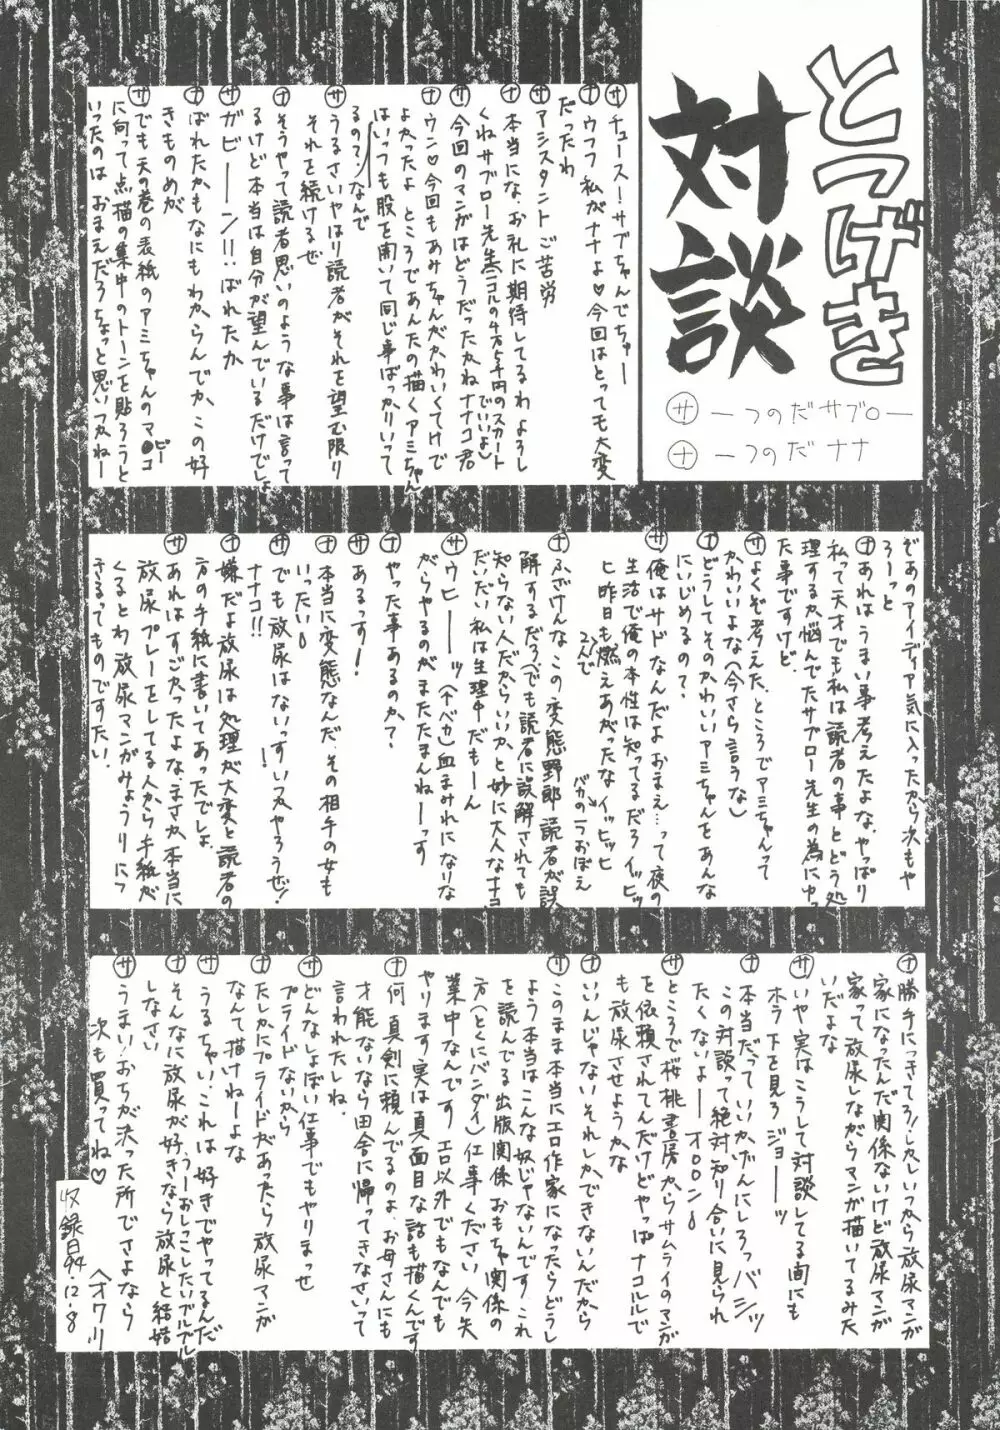 とつげき
対談
サ ーつのだサブローー
ナ ーつのだナナ
サ チュースー！サブちゃんでちゅー
ナ ウフフ 私がナナよ♡今回はとっても大変
だったわ
サ アシスタントご苦労
ナ 本当にな、お礼に期待してるわよろし
くねサブロー先生（ニコルの4万5千円のスカート
でいいよ）
サ 今回のマンガはどうだったかねナナコ君
ナ ウン♡今回もあみちゃんがかわいくてけで
よかったよ ところであんたの描くアミちゃん
はいっつも股を開いて同じ事ばっかりいって
るのてンなんで
サ うるさいやはり読者がそれを望む限り
それを続けるぜ
ナ そうやって読者思いのような事は言って
るけど本当は自分が望んでいるだけでしょ
サ ガビーーン!!ばれたか
ナ ばれたかもなにもわからんでか、この好
きものめが
サ でも天の巻の表紙のアミちゃんのマ●コ
ピー
に向って点描の集中のトーンを貼ろうと
いったのはおまえだろちょっと思いつかねー
ぞあのアイディア気に入ったから次もや
ろーっと
ナ あれはうまい事考えたよな、やっぱり
私って天才でも私は読者の事とどう処
理するか悩んでたサブロー先生の為にやっ
た事ですけど、
サ よくぞ考えた、ところでアミちゃんって
かわいいよな（今さら言うな）
ナ どうしてそのかわいいアミちゃんをあんな
にいじめるの？
サ 俺はサドなんだよおまえ…って夜の
生活で俺の本性は知ってるだろイッヒッ
ヒ昨日も燃えあがったなイッヒッヒ
2人で
バカの1つおぼえ
ナ ふざけんな、この変態野郎 読者が誤
解するだろ（でも読者に誤解されても
知らない人だからいいかと妙に大人なナナコ）
だいだい私は生理中だもーん
サ ウヒーーッ（本ベカ）血まみれになりな
がらやるのがまたたまんねーっす
ナ やった事あるのか？
サ あるっす！
ナ 本当に変態なんだ、その相手の女も
いったい。
サ でも放尿はないっすいつかやろうぜ！
ナナコ!!
ナ 嫌だよ放尿は処理が大変と読者の
方の手紙に書いてあったでしょ
サ あれはすごかったよな、まさか本当に
放尿プレーをしてる人から手紙が
くるとわ放尿マンガみょうりにつ
きるってものですたい、
ナ 勝手につきてろ！しかしいつから放尿マンガ
家になったんだ関係ないけど放尿マンガ
家って放尿しながらマンガ描いてるみた
いだよな
サ いや実はこうして対談してる間にも
ホラ下を見ろ ジョーーッ
ナ 本当だっていいかげんにしろっバシッ
この対談って絶対知り合いに見られ
たくないよーーオロロン。
サ ところで桜桃書房からサムライのマンガ
を依頼されてんだけどやっぱナコルルで
も放尿させようかな
ナ いいんじゃないそれしかできないんだから
サ このまま本当にエロ作家になったらどうし
よう本当はこんな奴じゃないんです、これ
を読んでる出版関係おもちゃ関係の
方（とくにバンダイ）仕事ください 今失
業中なんです エロ以外でもなんでも
やります 実は真面目な話も描くんです
ナ 何、真剣に頼んでるのよ、お母さんにも
才能ないなら田舎に帰ってきなさいって
言われたしね、
サ どんなしょぼい仕事でもやりまっせ
プライドないから
ナ たしかにプライドがあったら放尿マンガ
なんて描けねーよな
サ うるちゃい、これは好きでやってるんだ
うーおしっこしたいブルブル
ナ そんなに放尿が好きなら放尿と結婚
しなさい
サ うまい！おちが決った所でさよなら
次も買ってね♡
〈オワリ〉
収録日94.12.8